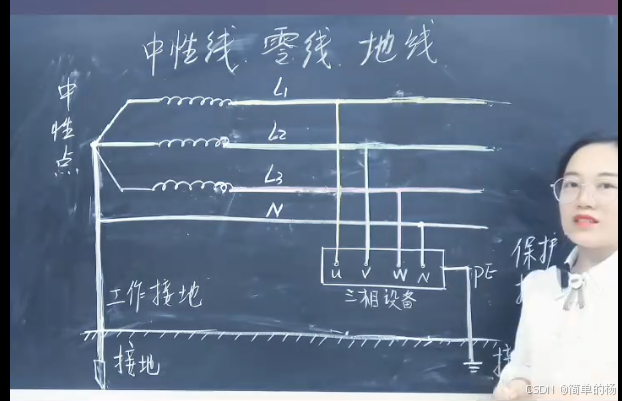 中性线、零线、地线
中性点
L1
L2
L3
N
U V W N
三相设备
PE
保护
工作接地
接地
接
CSDN @简单的杨